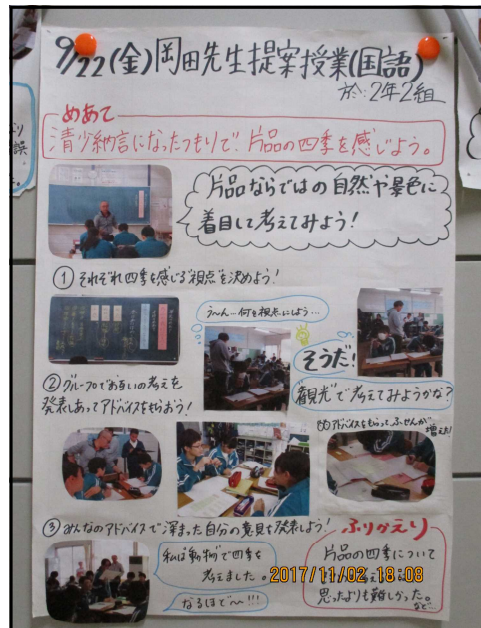 9/22(金)岡田先生提案授業(国語)
於:2年2組
めあて
清少納言になったつもりで、片品の四季を感じよう。
片品ならではの自然や景色に
着目して考えてみよう!
①それぞれ四季を感じる"視点"を決めよう!
う〜ん…何を視点にしよう…
そうだ!
"観光"で考えてみようかな?
②グループでお互いの考えを
発表しあってアドバイスをもらおう!
アドバイスをもらって、ふせんが
増えた!
③みんなのアドバイスで深まった自分の意見を発表しよう!
私は"動物"で四季を
考えました。
なるほど〜!!!
ふりかえり
片品の四季について
思ったよりも難しかった。
など…
2017/11/02 18:08
誤